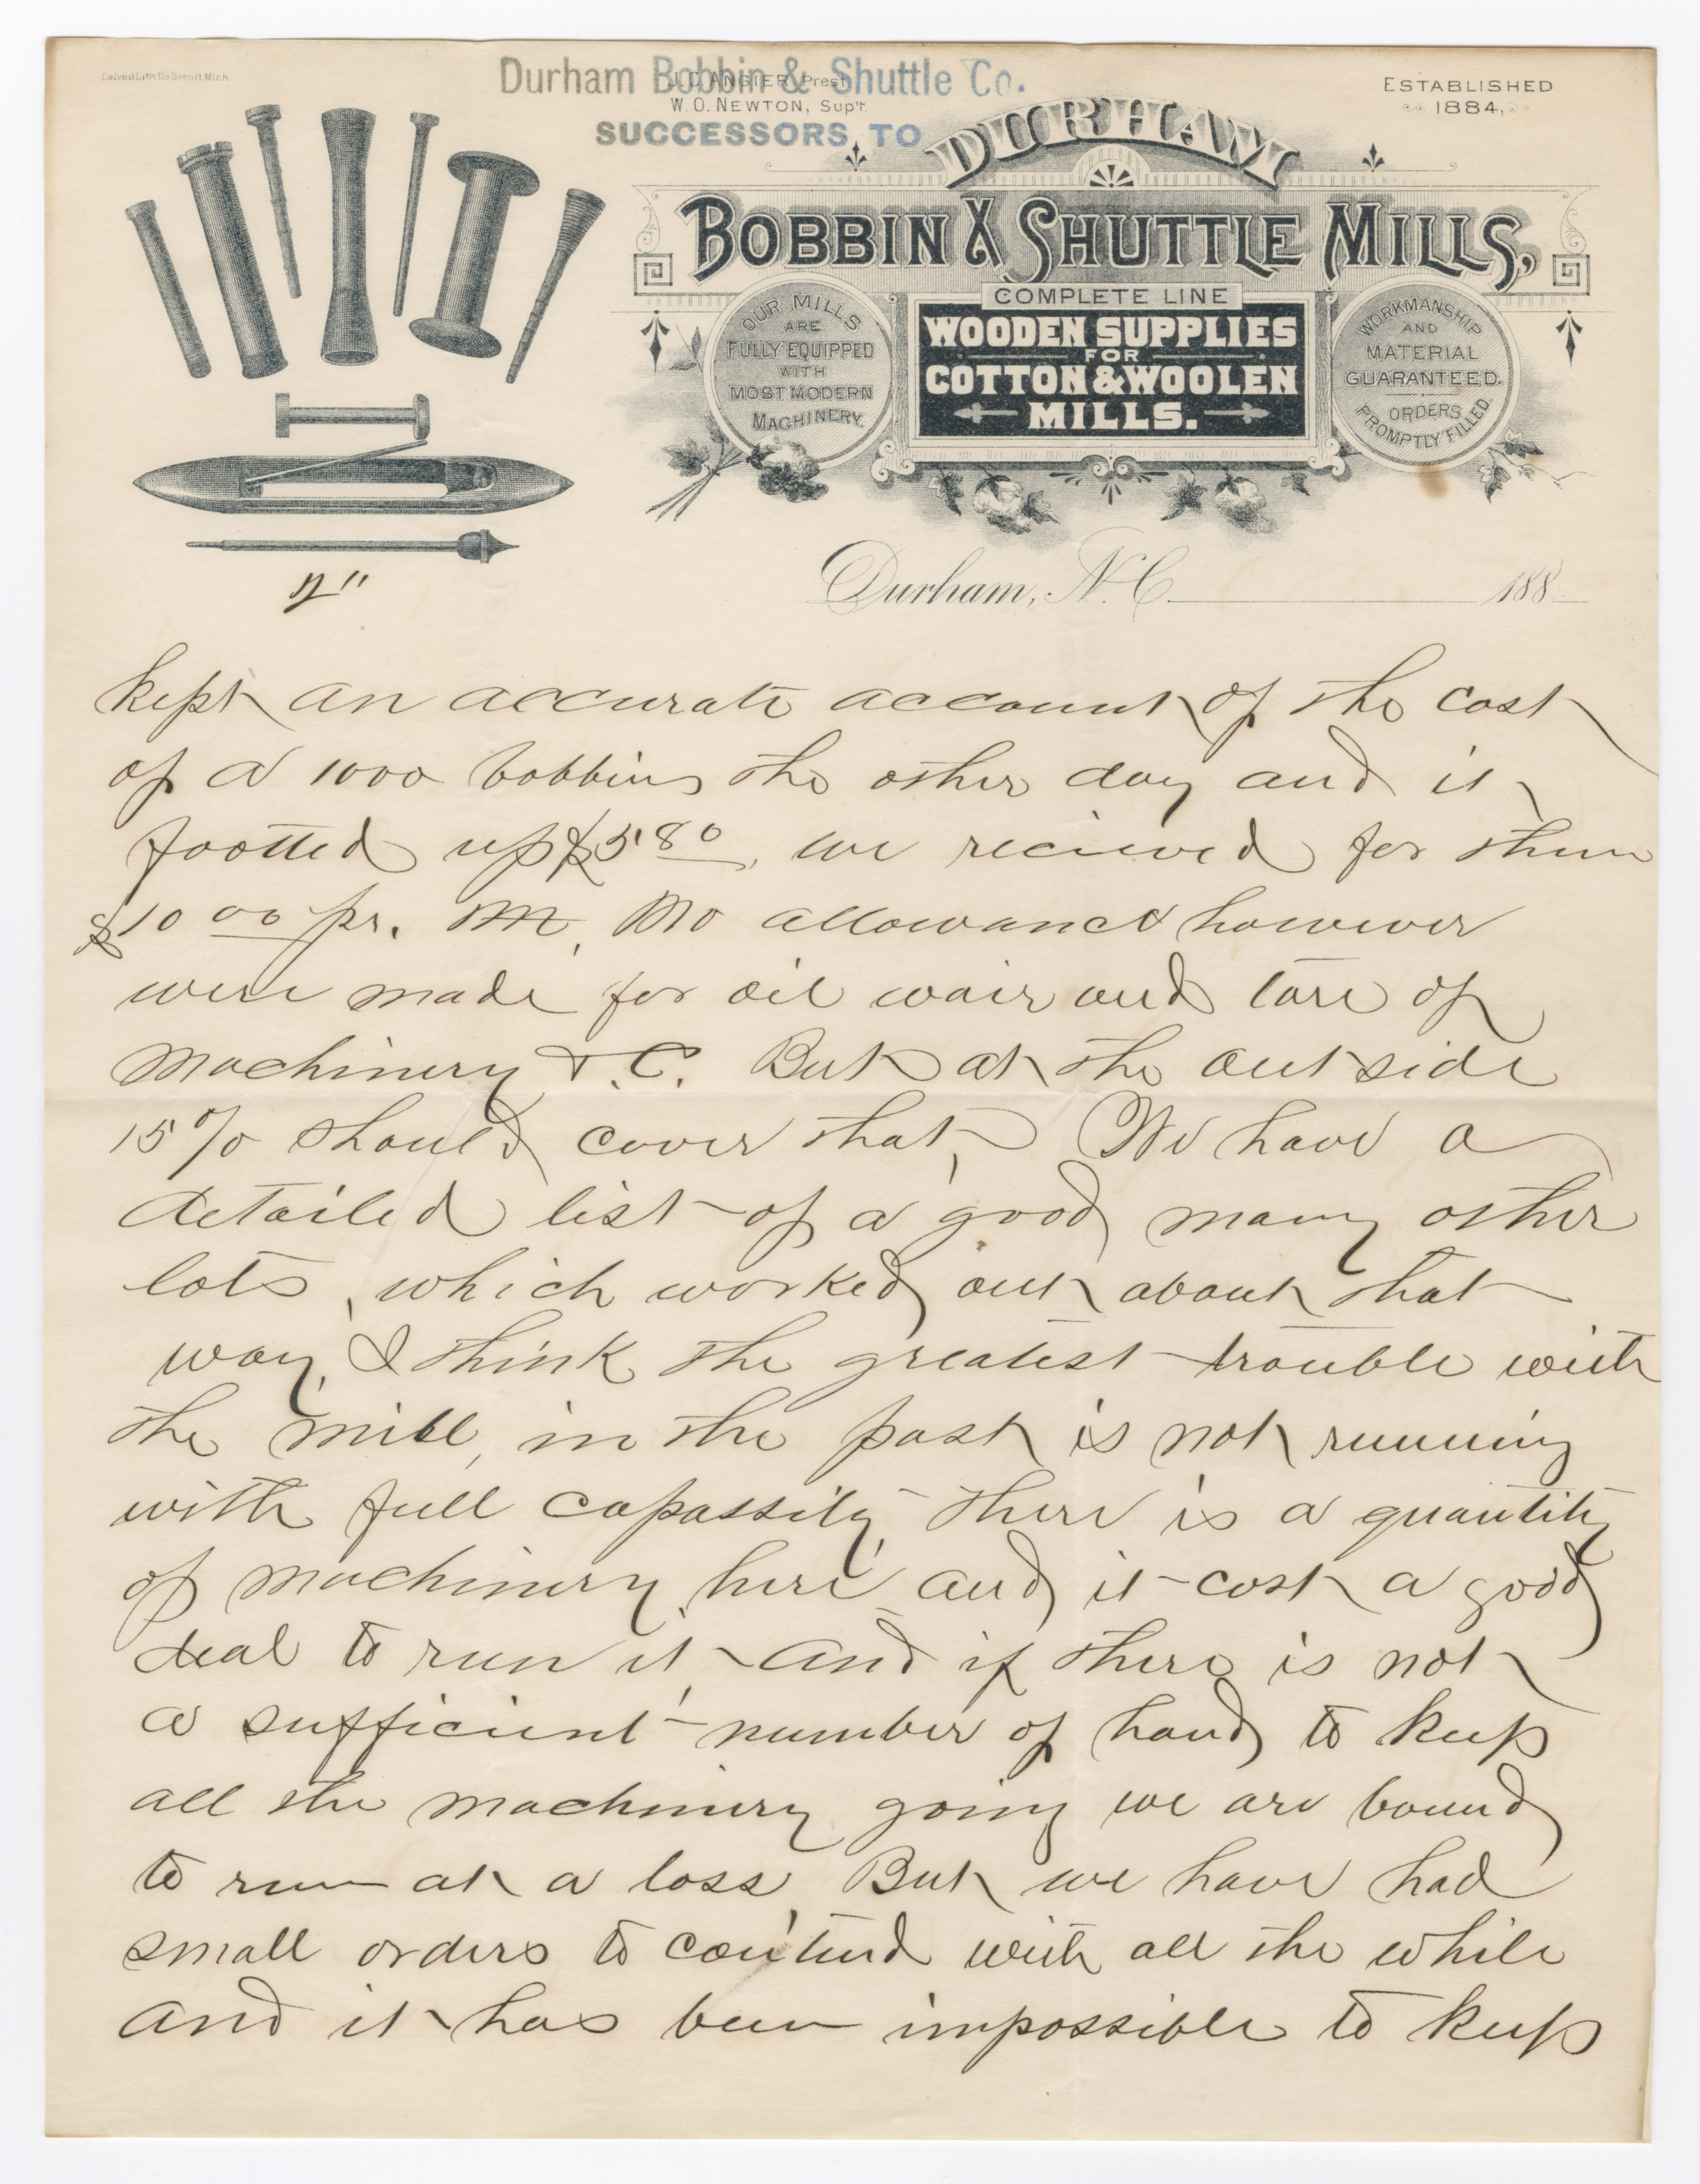 Calvert Lith. Co. Detroit, Mich.
Durham Bobbin & Shuttle Co.
J. C. ANGIER, Prest.
W. O. NEWTON, Sup't.
SUCCESSORS TO
ESTABLISHED
1884.
DURHAM
BOBBIN & SHUTTLE MILLS,
COMPLETE LINE
WOODEN SUPPLIES
FOR
COTTON & WOOLEN
MILLS.
OUR MILLS
ARE
FULLY EQUIPPED
WITH
MOST MODERN
MACHINERY.
WORKMANSHIP
AND
MATERIAL
GUARANTEED.
ORDERS
PROMPTLY FILLED.
Durham, N.C. 188
kept an accurate account of the cost
of a 1000 bobbins the other day and it
footted up $5.80, we recieved for them
$10 00 pr. M, No allowance however
were made for oil wair and tare of
machinery &.C. But at the outside
15% should cover that, We have a
detailed list of a good many other
lots, which worked out about that
way, I think the greatest trouble with
the mill, in the past is not running
with full capassity, there is a quantity
of machinery here and it cost a good
deal to run it, and if there is not
a sufficient number of hands to keep
all the machinery going we are bound
to run at a loss, But we have had
small orders to contend with all the while
and it has been impossible to keep